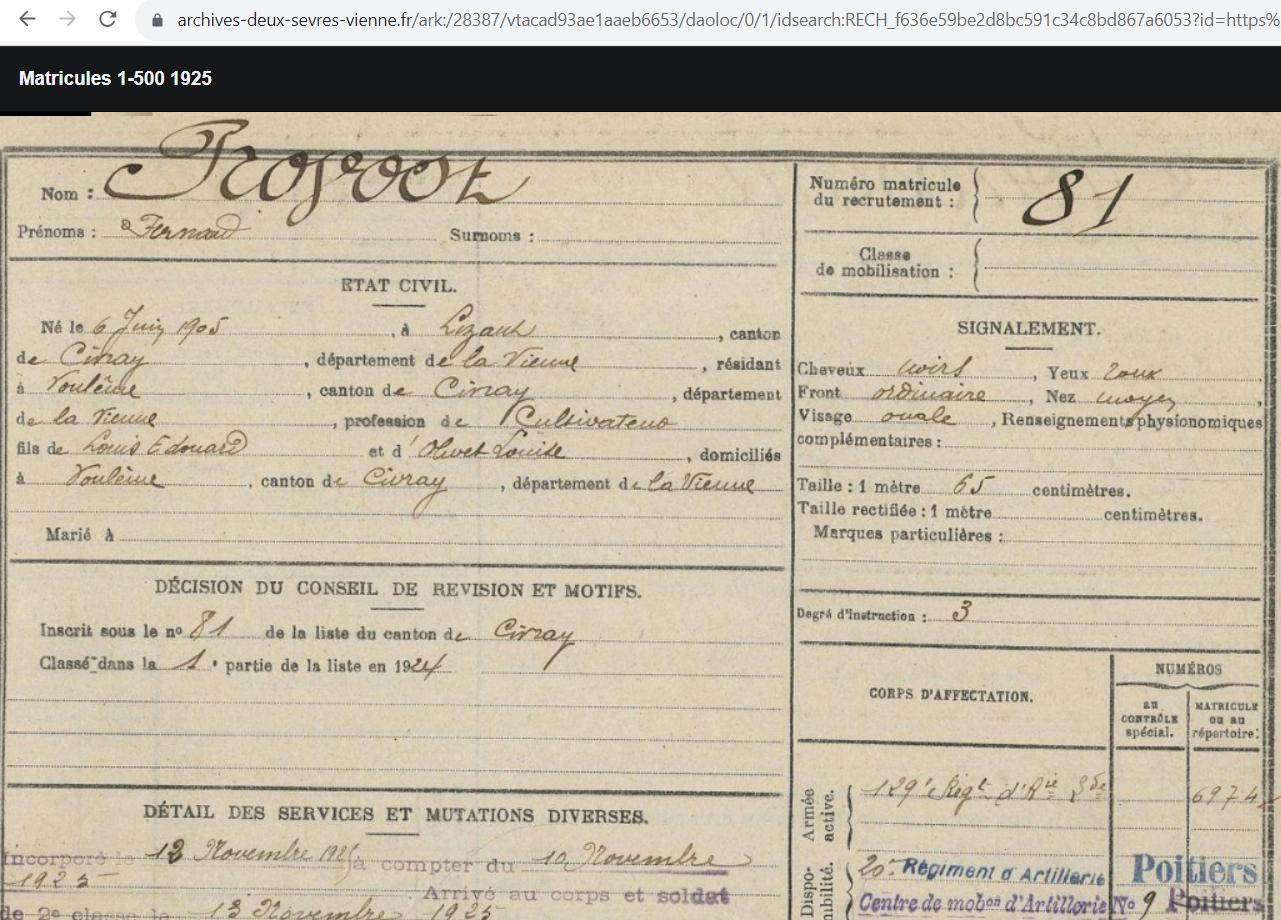 archives-deux-sevres-vienne.fr/ark:/28387/vtacad93ae1aaeb6653/daoloc/0/1/idsearch:RECH_f636e59be2d8bc591c34c8bd867a6053?id=https%
Matricules 1-500 1925
Nom :
Prénoms : Fernand Surnoms :
ETAT CIVIL.
Né le 6 Juin 1905, à Lizant, canton
de Civray, département de la Vienne, résidant
à Voulême, canton de Civray, département
de la Vienne, profession de Cultivateur
fils de Louis Edouard et d'Olivet Louise, domiciliés
à Voulême, canton de Civray, département de la Vienne
Marié à
DÉCISION DU CONSEIL DE REVISION ET MOTIFS.
Inscrit sous le nº 81 de la liste du canton de Civray
Classé dans la 1e partie de la liste en 1924
DÉTAIL DES SERVICES ET MUTATIONS DIVERSES.
Incorporé le Novembre 1925 à compter du 10 Novembre
1925 Arrivé au corps et soldat
de 2e classe le 13 Novembre 1925
Numéro matricule
du recrutement : 81
Classe
de mobilisation :
SIGNALEMENT.
Cheveux noirs, Yeux roux,
Front ordinaire, Nez moyen,
Visage ovale, Renseignements physionomiques
complémentaires :
Taille : 1 mètre 65 centimètres.
Taille rectifiée : 1 mètre centimètres.
Marques particulières :
Degré d'instruction : 3
CORPS D'AFFECTATION.
NUMÉROS
au
CONTRÔLE
spécial.
MATRICULE
ou au
répertoire.
Armée
active.
129e Régt d'Rie 6974
Dispo-
nibilité.
20e Régiment d'Artillerie Poitiers
Centre de mobon d'Artillerie No 9 Poitiers